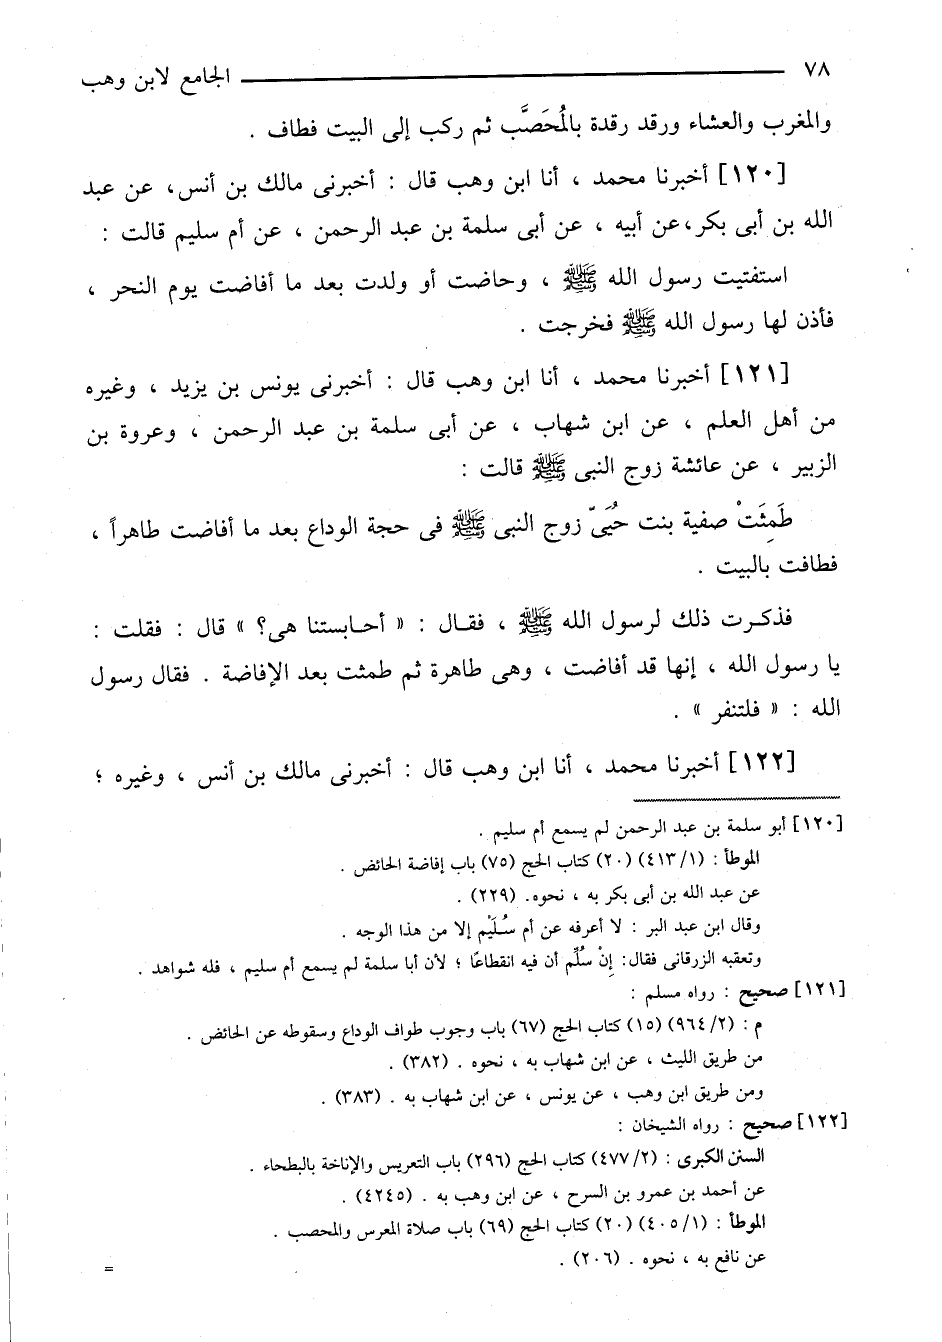 ٧٨ الجامع لابن وهب
والمغرب والعشاء ورقد رقدة بالمُحَصَّب ثم ركب إلى البيت فطاف .
[١٢٠] أخبرنا محمد ، أنا ابن وهب قال : أخبرنى مالك بن أنس، عن عبد
الله بن أبى بكر،عن أبيه ، عن أبى سلمة بن عبد الرحمن ، عن أم سليم قالت :
استفتيت رسول الله ﷺ ، وحاضت أو ولدت بعد ما أفاضت يوم النحر ،
فأذن لها رسول الله ﷺ فخرجت .
[١٢١] أخبرنا محمد ، أنا ابن وهب قال : أخبرنى يونس بن يزيد ، وغيره
من أهل العلم ، عن ابن شهاب ، عن أبى سلمة بن عبد الرحمن ، وعروة بن
الزبير ، عن عائشة زوج النبى ﷺ قالت :
طَمِثَتْ صفية بنت حُيَىّ زوج النبى ﷺ فى حجة الوداع بعد ما أفاضت طاهراً ،
فطافت بالبيت .
فذكرت ذلك لرسول الله ﷺ ، فقال : « أحابستنا هى؟ » قال : فقلت :
يا رسول الله ، إنها قد أفاضت ، وهى طاهرة ثم طمثت بعد الإفاضة . فقال رسول
الله : « فلتنفر » .
[١٢٢] أخبرنا محمد ، أنا ابن وهب قال : أخبرنى مالك بن أنس ، وغيره ؛
[١٢٠] أبو سلمة بن عبد الرحمن لم يسمع أم سليم .
الموطأ : (١/ ٤١٣) (٢٠) كتاب الحج (٧٥) باب إفاضة الحائض .
عن عبد الله بن أبى بكر به ، نحوه. (٢٢٩) .
وقال ابن عبد البر : لا أعرفه عن أم سُلَيْم إلا من هذا الوجه .
وتعقبه الزرقانى فقال: إنْ سُلِّم أن فيه انقطاعًا ؛ لأن أبا سلمة لم يسمع أم سليم ، فله شواهد .
[١٢١] صحيح : رواه مسلم :
م : (٢/ ٩٦٤) (١٥) كتاب الحج (٦٧) باب وجوب طواف الوداع وسقوطه عن الحائض .
من طريق الليث ، عن ابن شهاب به ، نحوه . (٣٨٢) .
ومن طريق ابن وهب ، عن يونس ، عن ابن شهاب به . (٣٨٣) .
[١٢٢] صحيح : رواه الشيخان :
السنن الكبرى : (٢/ ٤٧٧) كتاب الحج (٢٩٦) باب التعريس والإناخة بالبطحاء .
عن أحمد بن عمرو بن السرح ، عن ابن وهب به . (٤٢٤٥) .
الموطأ : (١/ ٤٠٥) (٢٠) كتاب الحج (٦٩) باب صلاة المعرس والمحصب .
عن نافع به ، نحوه . (٢٠٦) .
=